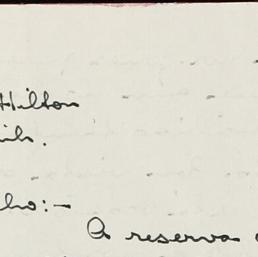 Hilton
ils.
lho:-
A reserva